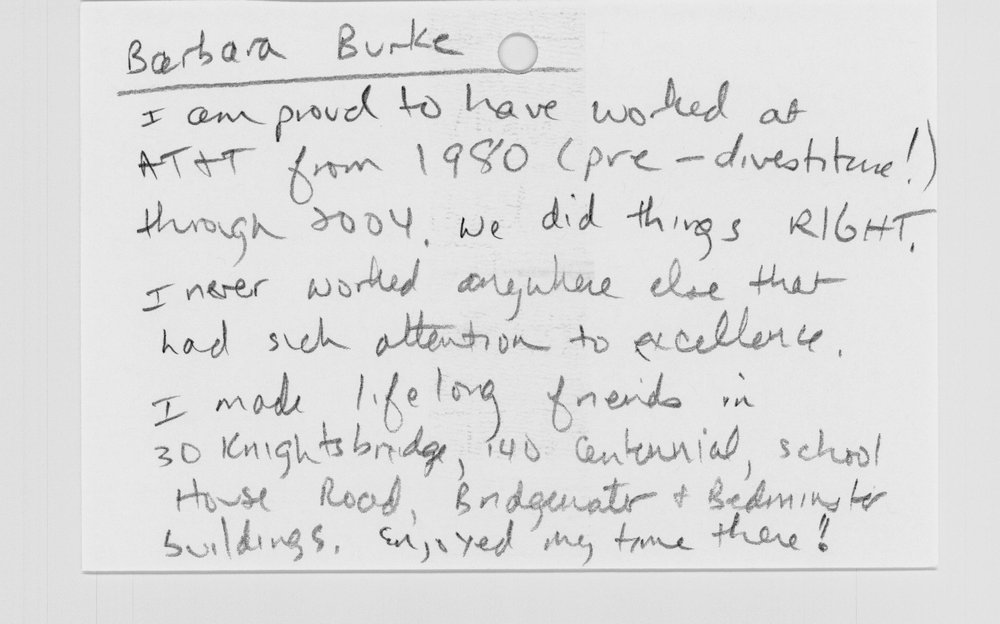 Barbara Burke
I am proud to have worked at
AT&T from 1980 (pre-divestiture!)
through 2004. We did things RIGHT.
I never worked anywhere else that
had such attention to excellence.
I made lifelong friends in
30 Knightsbridge, 140 Centennial, School
House Road, Bridgewater & Bedminster
buildings. Enjoyed my time there!